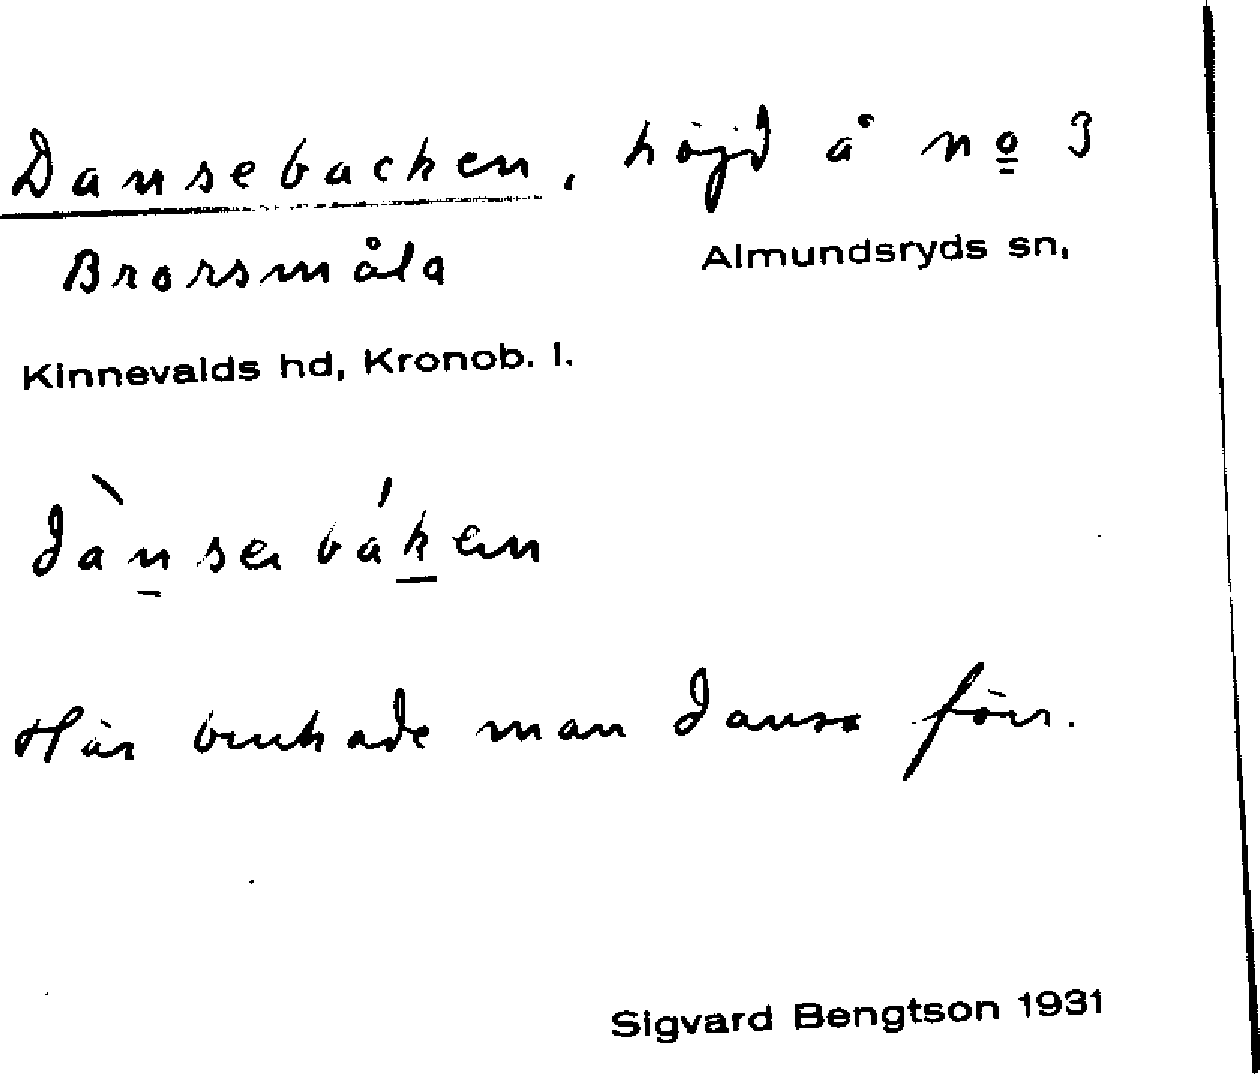 Dansebacken, höjd å nº 3
Brorsmåla Almundsryds sn,
Kinnevalds hd, Kronob. l.
dànseabáken
Här brukade man dansa förr.
Sigvard Bengtson 1931